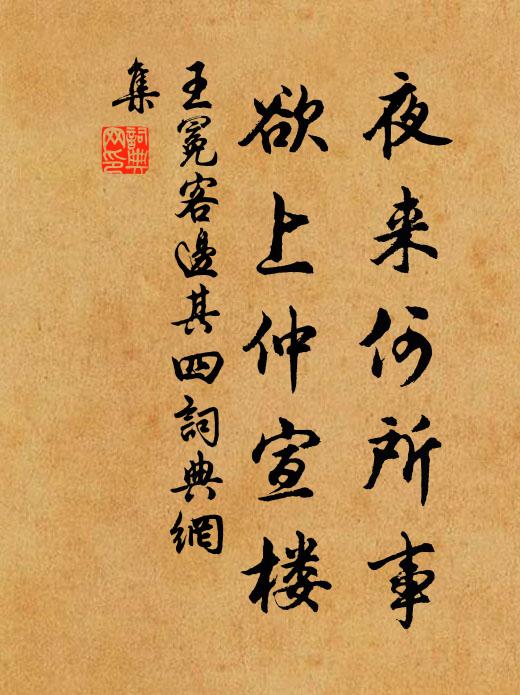 夜来何所事
欲上仲宣楼
王冕客邊其四詞典網
集
詞典
网印